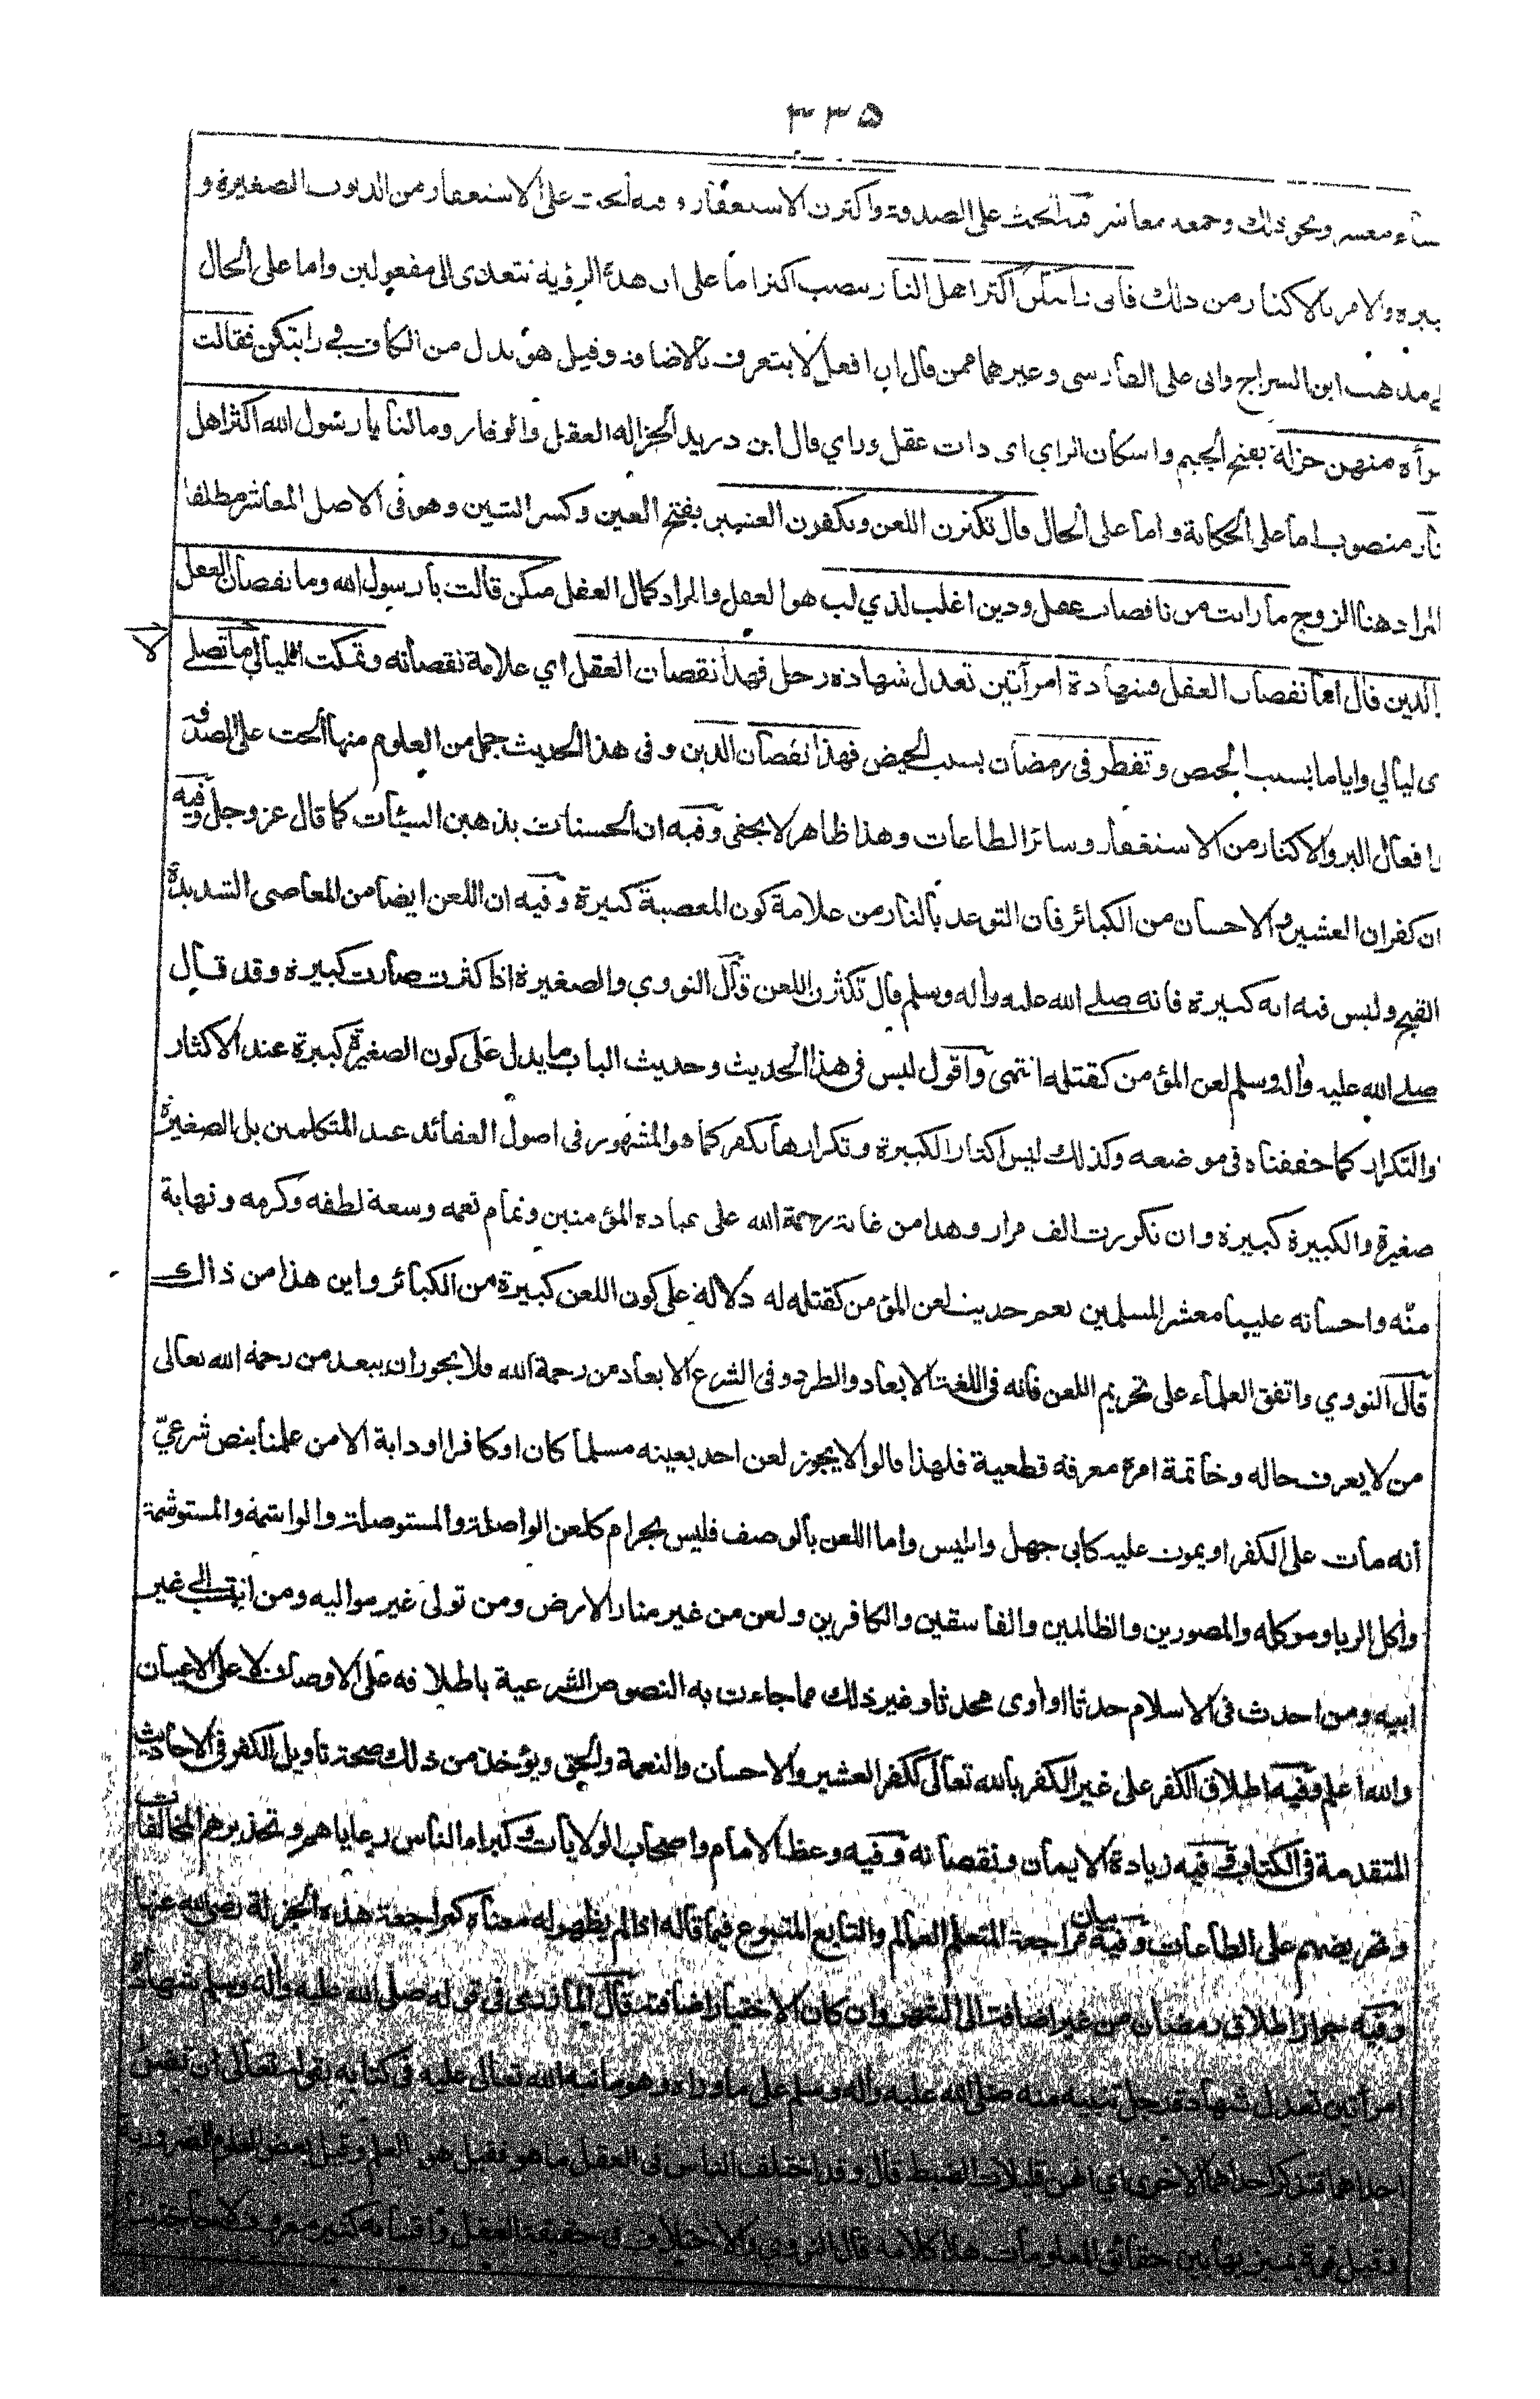 ٣٣٥
معشر ونحو ذلك وجمعه معاشر فيه الحث على الصدقة واكثرن الاستغفار وفيه الحث على الاستغفار من الذنوب الصغيرة و
والامر بالاكثار من ذلك فانى رايتكن اكثر اهل النار بنصب اكثر اما على ان هذه الرؤية تتعدى الى مفعولين واما على الحال
مذهب ابن السراج وابى على الفارسى وغيرهما ممن قال ان افعل لا يتعرف بالاضافة وقيل هو بدل من الكاف في رايتكن فقالت
منهن جزلة بفتح الجيم واسكان الزاي اى ذات عقل وراي قال ابن دريد الجزالة العقل والوقار ومالنا يا رسول الله اكثر اهل
منصوب اما على الحكاية واما على الحال قال تكثرن اللعن وتكفرن العشير بفتح العين وكسر الشين وهو فى الاصل المعاشر مطلقا
المراد هنا الزوج ما رايت من ناقصات عقل ودين اغلب لذي لب هو العقل والمراد كمال العقل منكن قالت يا رسول الله وما نقصان العقل
الدين قال اما نقصان العقل فشهادة امرأتين تعدل شهادة رجل فهذا نقصان العقل اي علامة نقصانه وتمكث الليالي ما تصلي لا
ى ليالي واياما بسبب الحيض وتفطر فى رمضان بسبب الحيض فهذا نقصان الدين وفى هذا الحديث جمل من العلوم منها الحث على الصدقة
افعال البر والاكثار من الاستغفار وسائر الطاعات وهذا ظاهر لا يخفى وفيه ان الحسنات يذهبن السيئات كما قال عز وجل وفيه
ان كفران العشير والاحسان من الكبائر فان التوعد بالنار من علامة كون المعصية كبيرة وفيه ان اللعن ايضا من المعاصى الشديدة
القبح وليس فيه انه كبيرة فانه صلى الله عليه واله وسلم قال تكثرن اللعن قال النووي والصغيرة اذا كثرت صارت كبيرة وقد قال
صلى الله عليه واله وسلم لعن المؤمن كقتله انتهى واقول ليس فى هذا الحديث وحديث الباب ما يدل على كون الصغيرة كبيرة عند الاكثار
والتكرار كما حققناه فى موضعه وكذلك ليس اكثار الكبيرة وتكرارها بكفر كما هو المشهور فى اصول العقائد عند المتكلمين بل الصغيرة
صغيرة والكبيرة كبيرة وان تكررت الف مرار وهذا من غاية رحمة الله على عباده المؤمنين وتمام نعمه وسعة لطفه وكرمه ونهاية
منّه واحسانه علينا معشر المسلمين نعم حديث لعن المؤمن كقتله له دلالة على كون اللعن كبيرة من الكبائر واين هذا من ذالك
قال النووي واتفق العلماء على تحريم اللعن فانه فى اللغة الابعاد والطرد وفى الشرع الابعاد من رحمة الله فلا يجوز ان يبعد من رحمة الله تعالى
من لا يعرف حاله وخاتمة امره معرفة قطعية فلهذا قالوا لا يجوز لعن احد بعينه مسلما كان او كافرا او دابة الا من علمنا بنص شرعيّ
أنه مات على الكفر او يموت عليه كابى جهل وابليس واما اللعن بالوصف فليس بحرام كلعن الواصلة والمستوصلة والواشمة والمستوشمة
واكل الربا وموكله والمصورين والظالمين والفاسقين والكافرين ولعن من غير منار الارض ومن تولى غير مواليه ومن انتسب الى غير
ابيه ومن احدث فى الاسلام حدثا او اوى محدثا وغير ذلك مما جاءت به النصوص الشرعية باطلاقه على الاوصاف لا على الاعيان
والله اعلم وفيه اطلاق الكفر على غير الكفر بالله تعالى ككفر العشير والاحسان والنعمة والحق ويؤخذ من ذلك صحة تاويل الكفر فى الاحاديث
المتقدمة فى الكتاب وفيه زيادة الايمان ونقصانه وفيه وعظ الامام واصحاب الولايات وكبراء الناس رعاياهم وتحذيرهم المخالفات
وتحريضهم على الطاعات وفيه بيان مراجعة المتعلم العالم والتابع المتبوع فيما قاله اذا لم يظهر له معناه كمراجعة هذه الجزلة رضى الله عنها
وفيه جواز اطلاق رمضان من غير اضافة الى الشهر وان كان الاختيار اضافته قال المازرى فى قوله صلى الله عليه واله وسلم شهادة
امرأتين تعدل شهادة رجل تنبيه منه صلى الله عليه واله وسلم على ما وراه وهو ما نبه الله تعالى عليه فى كتابه بقوله تعالى ان تضل
احداهما فتذكر احداهما الاخرى اي انهن قليلات الضبط قال وقد اختلف الناس فى العقل ما هو فقيل هو العلم وقيل بعض العلوم الضرورية
وقيل قوة يميز بها بين حقائق المعلومات هذا كلامه قال النووي والاختلاف فى حقيقة العقل واقسامه كثير معروف